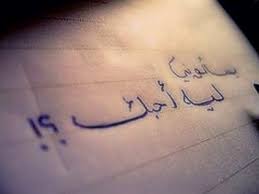 سألوني
ليه أحبك ؟!